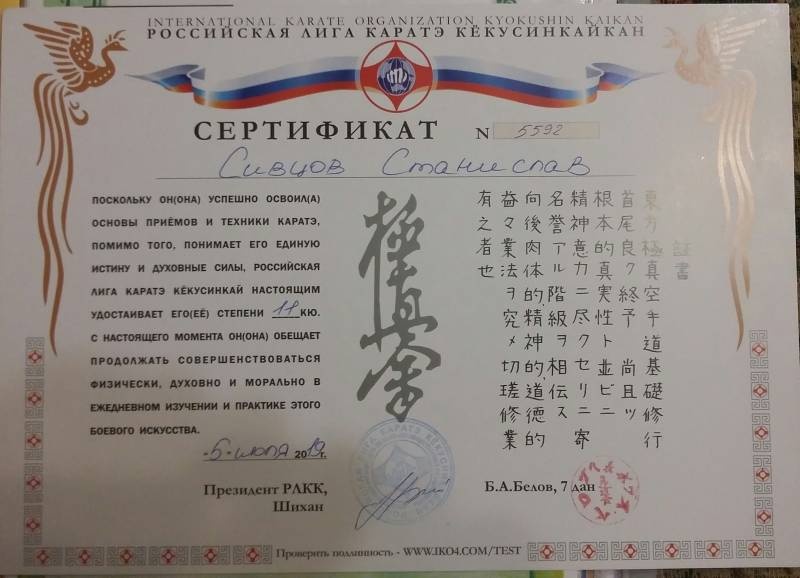 INTERNATIONAL KARATE ORGANIZATION KYOKUSHIN KAIKAN
РОССИЙСКАЯ ЛИГА КАРАТЭ КЁКУСИНКАЙКАН
СЕРТИФИКАТ N 5592
Сивцов Станислав
ПОСКОЛЬКУ ОН(ОНА) УСПЕШНО ОСВОИЛ(А)
ОСНОВЫ ПРИЁМОВ И ТЕХНИКИ КАРАТЭ,
ПОМИМО ТОГО, ПОНИМАЕТ ЕГО ЕДИНУЮ
ИСТИНУ И ДУХОВНЫЕ СИЛЫ, РОССИЙСКАЯ
ЛИГА КАРАТЭ КЁКУСИНКАЙ НАСТОЯЩИМ
УДОСТАИВАЕТ ЕГО(ЕЁ) СТЕПЕНИ 11 КЮ.
С НАСТОЯЩЕГО МОМЕНТА ОН(ОНА) ОБЕЩАЕТ
ПРОДОЛЖАТЬ СОВЕРШЕНСТВОВАТЬСЯ
ФИЗИЧЕСКИ, ДУХОВНО И МОРАЛЬНО В
ЕЖЕДНЕВНОМ ИЗУЧЕНИИ И ПРАКТИКЕ ЭТОГО
БОЕВОГО ИСКУССТВА.
5 июля 2019г.
極真会
証書
東方極真空手道基礎修行
首尾良ク終予尚且ツ
根本的真実性ト並ビニ
精神意力ニ尽クセリニ寄
名誉アル階級ヲ相伝ス
向後肉体的精神的道徳的
益々業法ヲ究メ切瑳修業
有之者也
Президент РЛКК,
Шихан
Б.А.Белов, 7 дан
Проверить подлинность - WWW.IKO4.COM/TEST